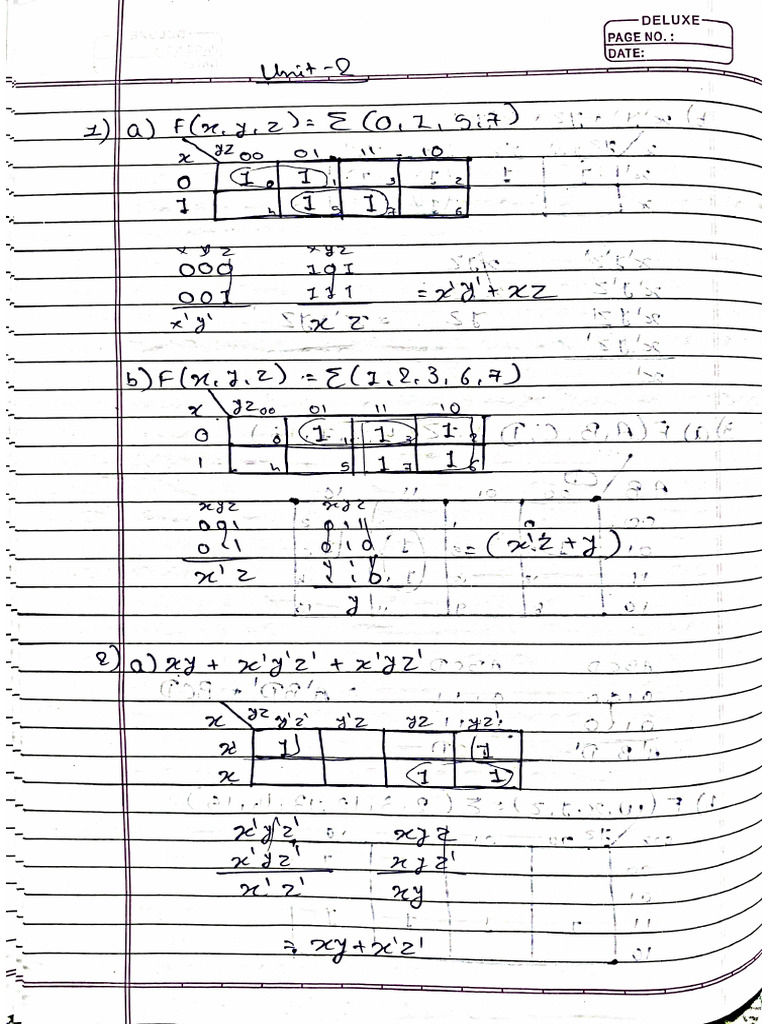 DELUXE
PAGE NO. :
DATE:
Unit - 2
1) a) F(x, y, z) = Σ (0, 1, 5, 7)
x yz 00 01 11 10
0 1 0 1 1 3 2
1 4 1 5 1 7 6
x y z x y z
000 101
001 111 = x'y' + xz
x'y' x z
b) F(x, y, z) = Σ (1, 2, 3, 6, 7)
x yz 00 01 11 10
0 0 1 1 1 3 1 2
1 4 5 1 7 1 6
xyz xyz
001 011
0 1 010 = (x'z + y)
x'z
y
2) a) xy + x'y'z' + x'yz'
x yz y'z' y'z yz yz'
x' 1 1
x 1 1
x'y'z' xyz
x'yz' xyz'
x'z' xy
= xy + x'z'